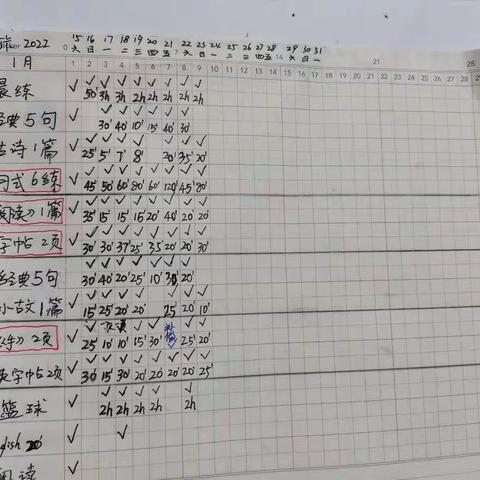 2022
15 16 17 18 19 20 21 22 23 24 25 26 27 28 29 30 31
六 日 一 二 三 四 五 六 日 一 二 三 四 五 六 日 一
1月 1 2 3 4 5 6 7 8 9 10 11 12 13 14 15 16 17 18 19 20 21 22 23 24 25 26 27
晨练 ✓ ✓ 50' ✓ 3h ✓ 3h ✓ 2h ✓ 2h ✓ 2h ✓ 2h ✓ 2h
经典5句 ✓ ✓ 30' ✓ 40' ✓ 10' ✓ 15' ✓ 40' ✓ 30'
古诗1篇 ✓ ✓ 25' ✓ 5' ✓ 7' ✓ 8' 20' ✓ 35' ✓ 20'
式6练 ✓ ✓ 45' ✓ 50' ✓ 60' ✓ 80' ✓ 60' ✓ 120' ✓ 45' ✓ 80'
阅读》1篇 ✓ ✓ 35' ✓ 15' ✓ 15' ✓ 15' ✓ 20' ✓ 40' ✓ 20' ✓ 20'
字帖2页 ✓ ✓ 30' ✓ 30' ✓ 37' ✓ 25' ✓ 35' ✓ 20' ✓ 20' ✓ 30'
经典5句 ✓ 30' ✓ 40' ✓ 20' ✓ 25' ✓ 10' ✓ 30' ✓ 20'
小古文1篇 ✓ ✓ 15' ✓ 25' ✓ 20' ✓ 20' ✓ 25 ✓ 20' ✓ 10'
2页 ✓ ✓ 25' 10' 10' ✓ 15' ✓ 30' ✓ 25' ✓ 20'
英字帖2页 ✓ ✓ 30' ✓ 15' ✓ 30' ✓ 20' ✓ 20' ✓ 20' ✓ 20' ✓ 25'
篮球 ✓ ✓ 2h ✓ 2h ✓ 2h ✓ 2h ✓ 2h
glish 20' ✓ ✓
阅读 ✓